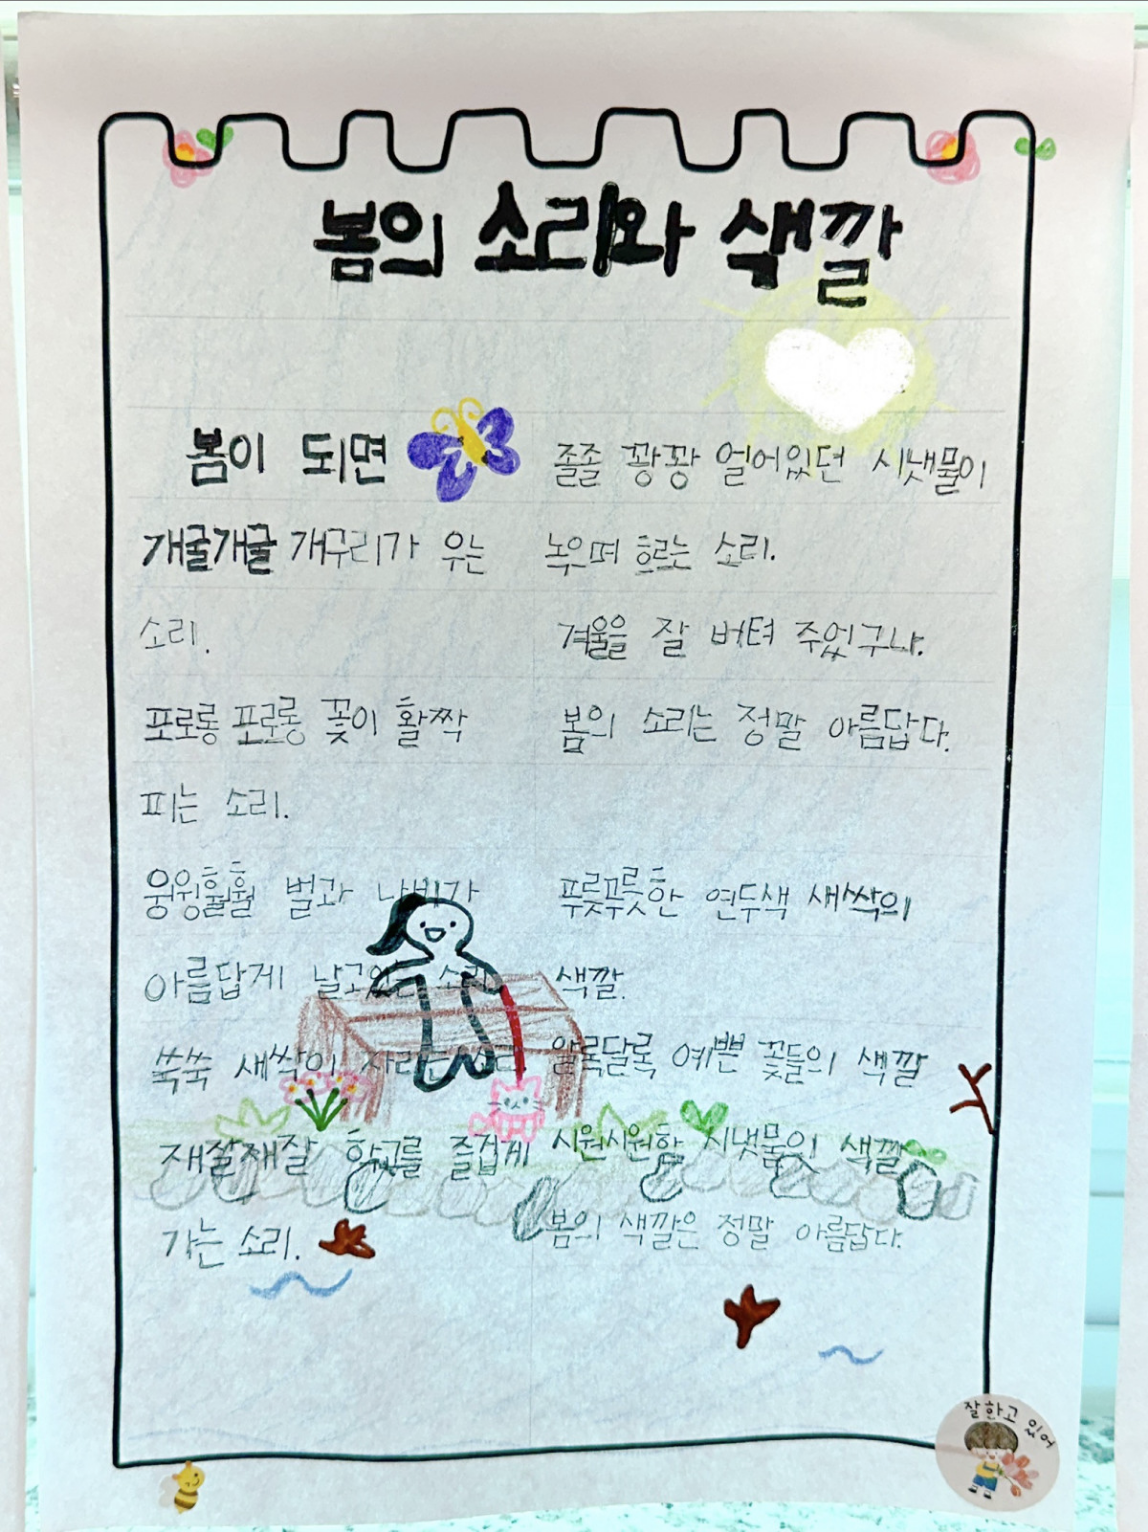 봄의 소리와 색깔
봄이 되면
개굴개굴 개구리가 우는
소리.
포로롱 포로롱 꽃이 활짝
피는 소리.
윙윙훨훨 벌과 나비가
아름답게 날고있는 소리
쑥쑥 새싹이 자라는 소리
재잘재잘 학교를 즐겁게
가는 소리.
졸졸 꽝꽝 얼어있던 시냇물이
녹으며 흐르는 소리.
겨울을 잘 버텨 주었구나.
봄의 소리는 정말 아름답다.
푸릇푸릇한 연두색 새싹의
색깔.
알록달록 예쁜 꽃들의 색깔
시원시원한 시냇물의 색깔
봄의 색깔은 정말 아름답다.
잘하고 있어